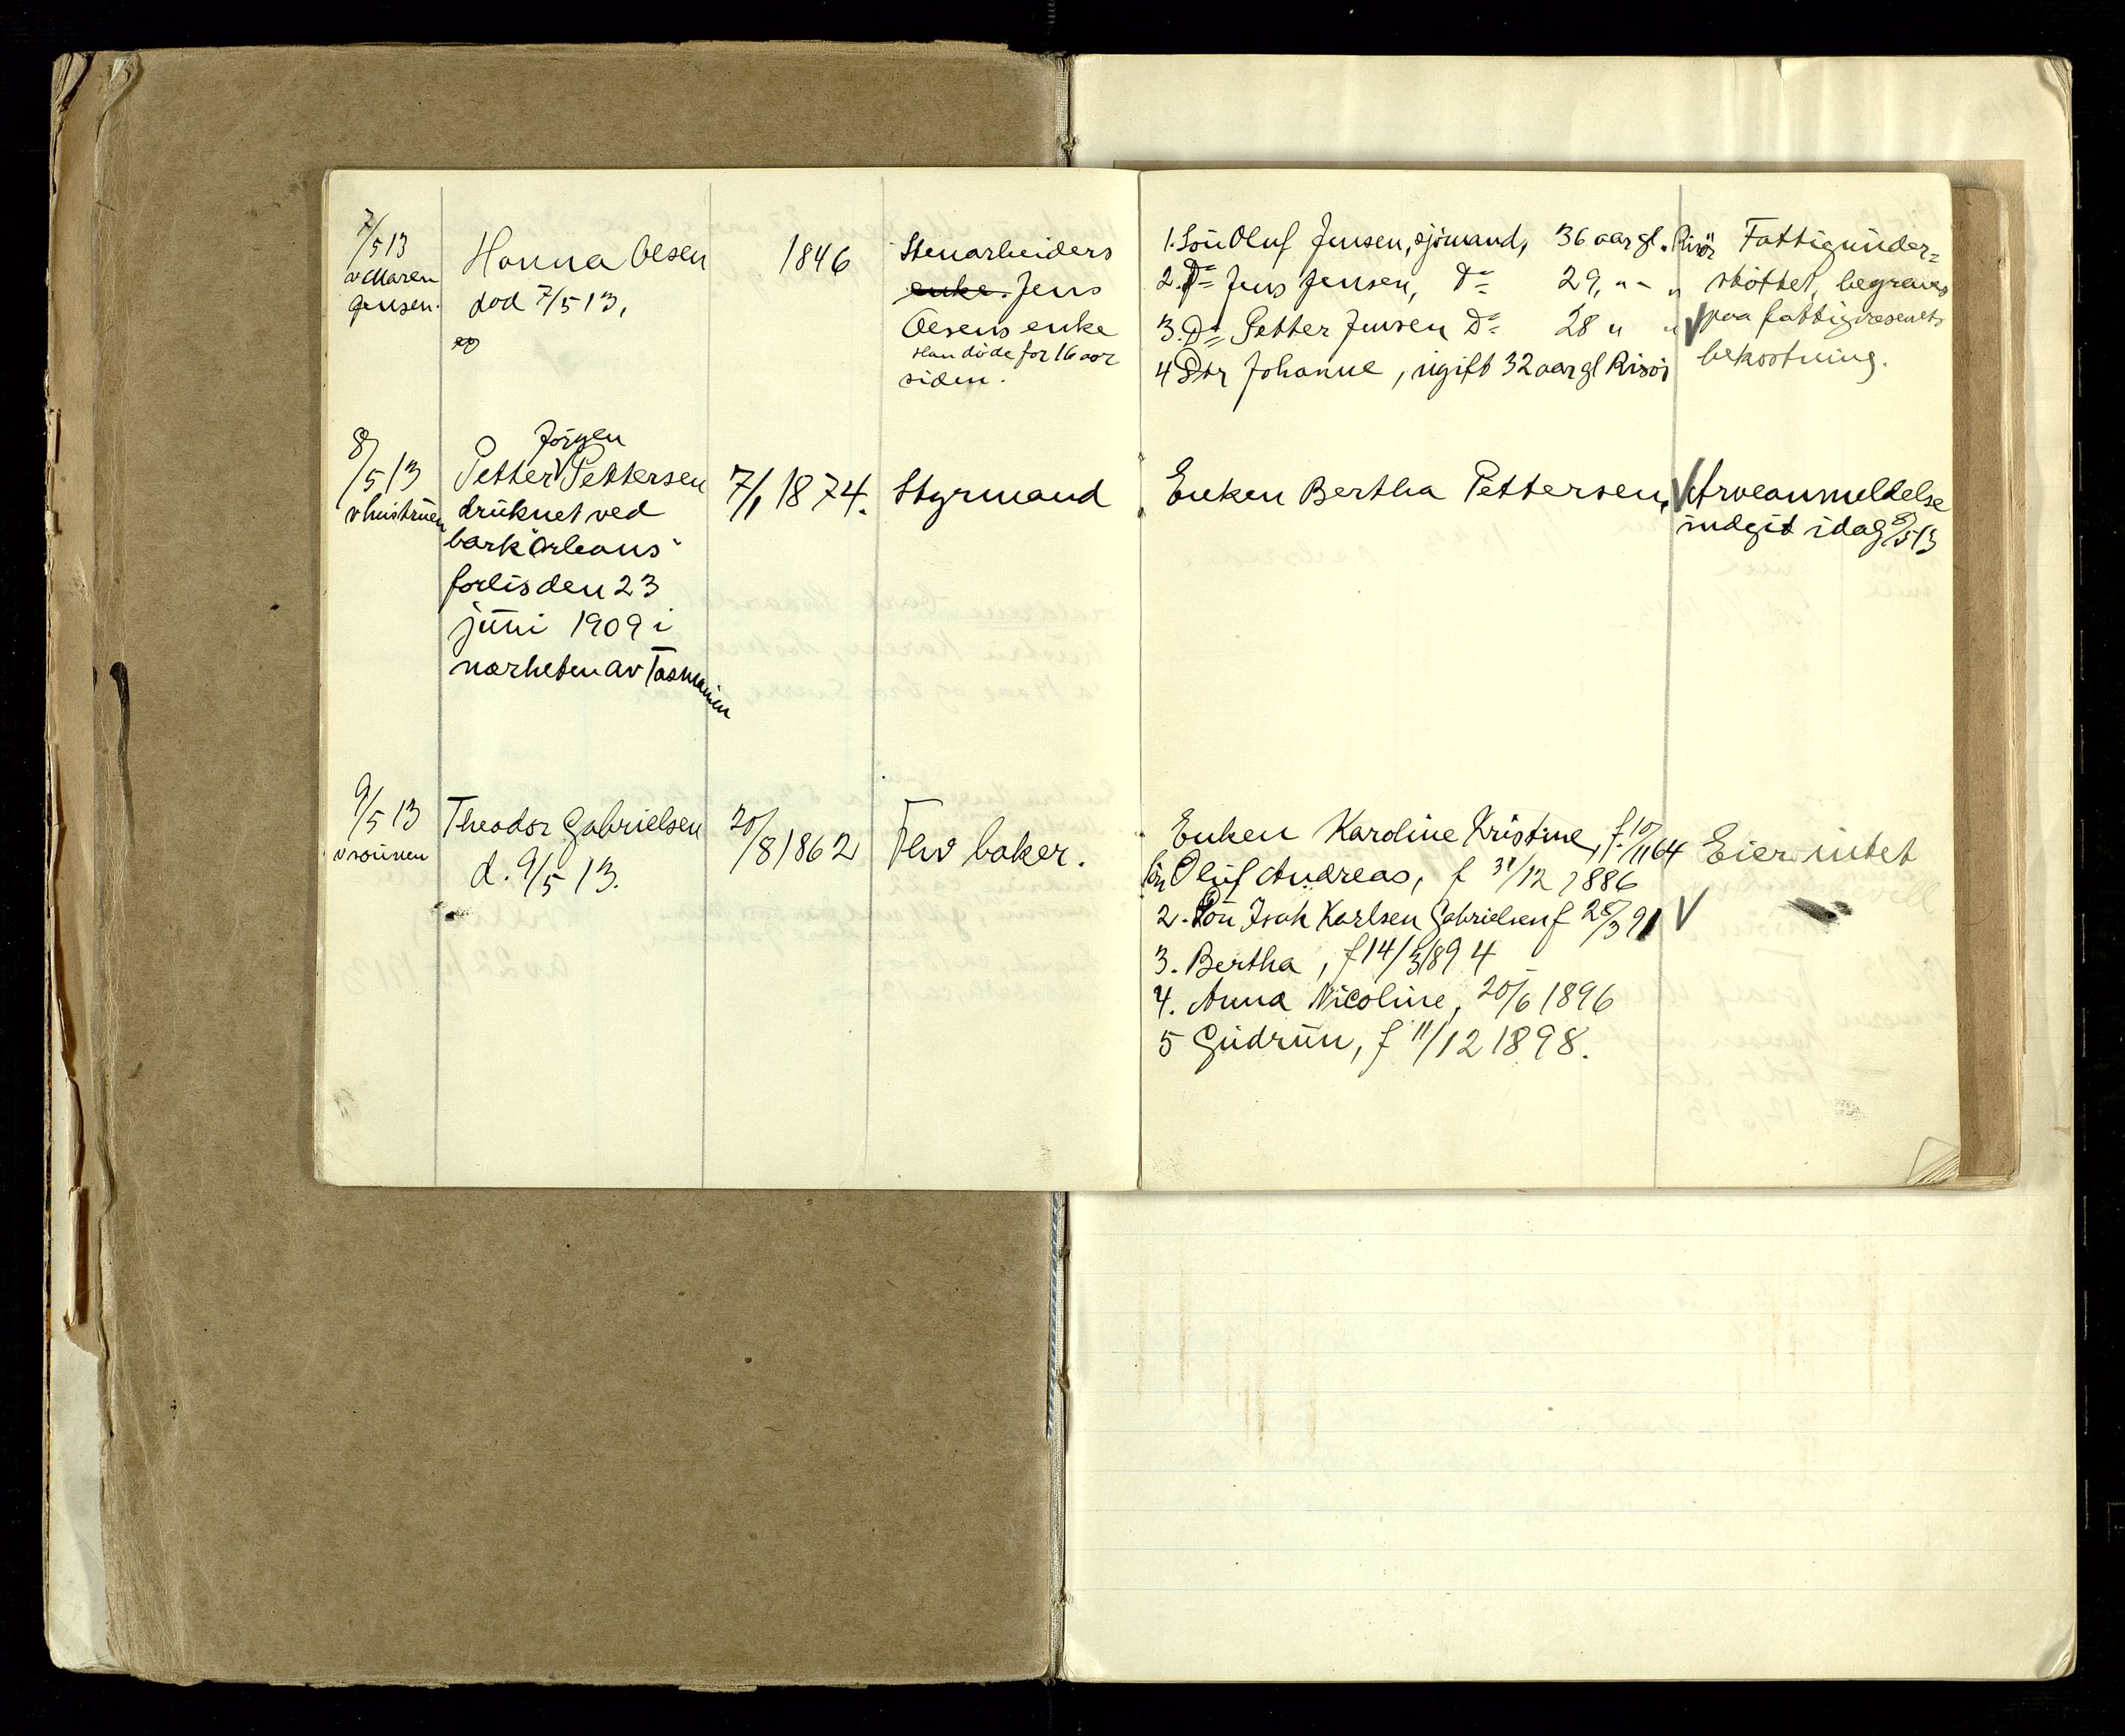 7/5 13
v Maren
Jensen.
Hanna Olsen
død 7/5 13,
1846
Stenarbeiders
enke. Jens
Olsens enke
Han døde for 16 aar
siden.
1. Søn Oluf Jensen, sjømand, 36 aar gl. Risør
2. Do Jens Jensen, Do 29, " - "
3. Do Petter Jensen Do 28 " "
4 Dtr Johanne, ugift 32 aar gl Risør
Fattigunder=
støttet, begraves
paa fattigvæsenets
bekostning.
8/5 13
v hustruen
Jørgen
Petter Pettersen
druknet ved
bark "Orleans"
forlis den 23
juni 1909 i
nærheten av Tasmanien
7/1 1874.
Styrmand
Enken Bertha Pettersen,
Arveanmeldelse
indgit idag 8/5 13
9/5 13
v sønnen
Theodor Gabrielsen
d. 9/5 13.
20/8 1862
Fhv baker.
Enken Karoline Kristine, f. 10/11 64
Søn Oluf Andreas, f 31/12 1886
2. Søn Isak Karlsen Gabrielsen f 28/3 91
3. Bertha, f 14/3 1894
4. Anna Nicoline, 20/6 1896
5 Gudrun, f 11/12 1898.
Eier intet